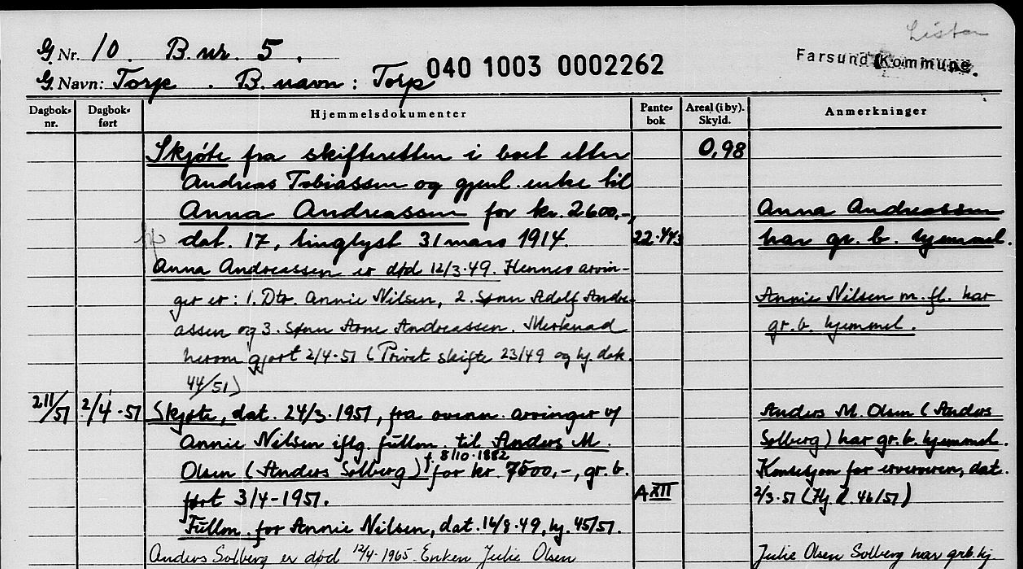 Lista
G. Nr. 10 B. nr. 5.
Farsund Kommune.
G. Navn: Torp. B. navn: Torp
040 1003 0002262
Dagbok-nr. Dagbok-ført Hjemmelsdokumenter Pante-bok Areal (i by). Skyld. Anmerkninger
Skjøte fra skifteretten i boet etter 0,98
Andreas Tobiassen og gjenl. enke til
Anna Andreassen for kr. 2600,-, Anna Andreassen
dat. 17, tinglyst 31 mars 1914. 22.443 har gr. b. hjemmel.
Anna Andreassen er død 12/3.49. Hennes arvin-
ger er: 1. Dtr. Annie Nilsen, 2. Sønn Adolf Andre- Annie Nilsen m.fl. har
assen og 3. Sønn Arne Andreassen. Merknad gr. b. hjemmel.
herom gjort 2/4-51 (Privat skifte 23/49 og hj. dok.
44/51)
211/51 2/4-51 Skjøte, dat. 24/3.1951, fra ovenn. arvinger v/ Anders M. Olsen (Anders
Annie Nilsen iflg. fullm. til Anders M. Solberg) har gr. b. hjemmel.
f. 8/10.1882
Olsen (Anders Solberg) for kr. 7500,-, gr. b. Konsesjon for erververen, dat.
ført 3/4-1951. A XII 2/3.51 (Hj. d. 46/51)
Fullm. for Annie Nilsen, dat. 16/8.49, hj. 45/51.
Anders Solberg er død 12/4.1965. Enken Julie Olsen Julie Olsen Solberg har grb. hj.